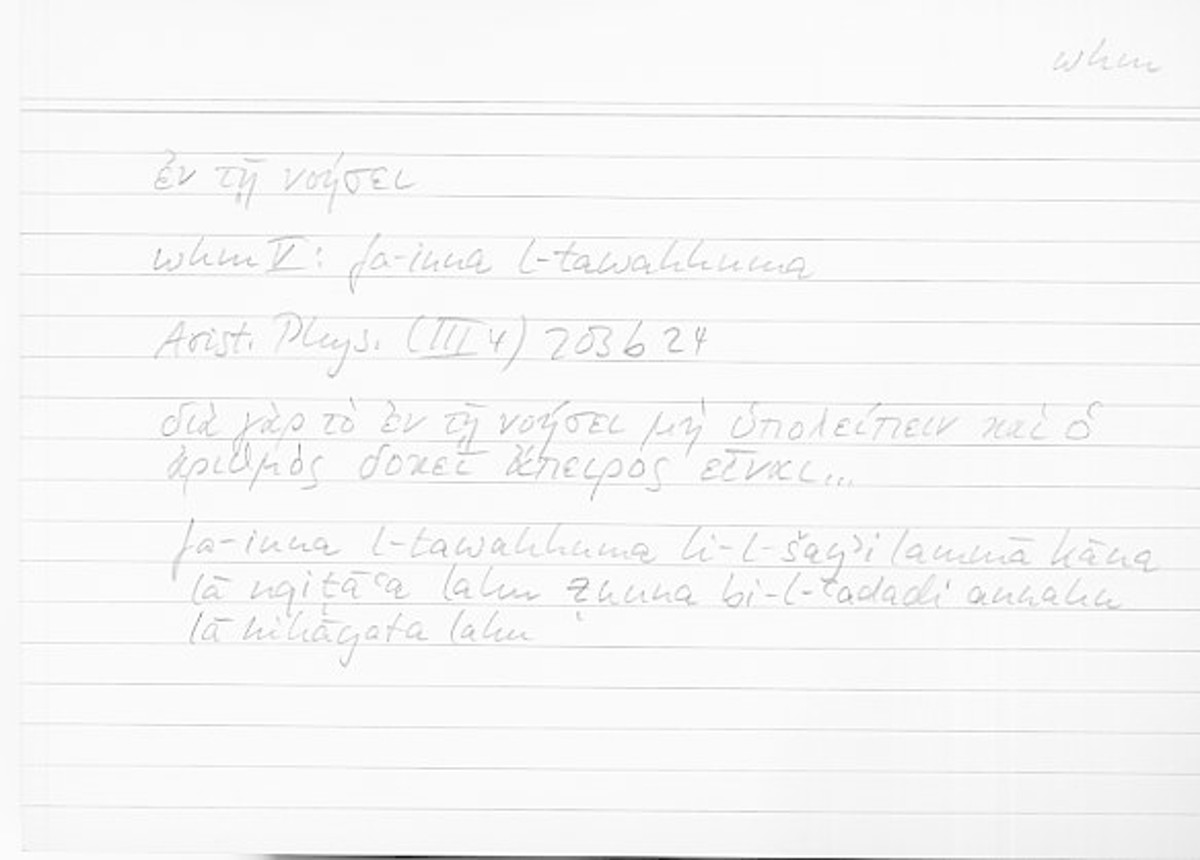 whm
ἐν τῇ νοήσει
whm V: fa-inna l-tawahhuma
Arist. Phys. (III 4) 203 b 24
διὰ γὰρ τὸ ἐν τῇ νοήσει μὴ ὑπολείπειν καὶ ὁ
ἀριθμὸς δοκεῖ ἄπειρος εἶναι...
fa-inna l-tawahhuma li-l-šayʾi lammā kāna
lā nqiṭāʿa lahu ẓunna bi-l-ʿadadi annahu
lā nihāyata lahu